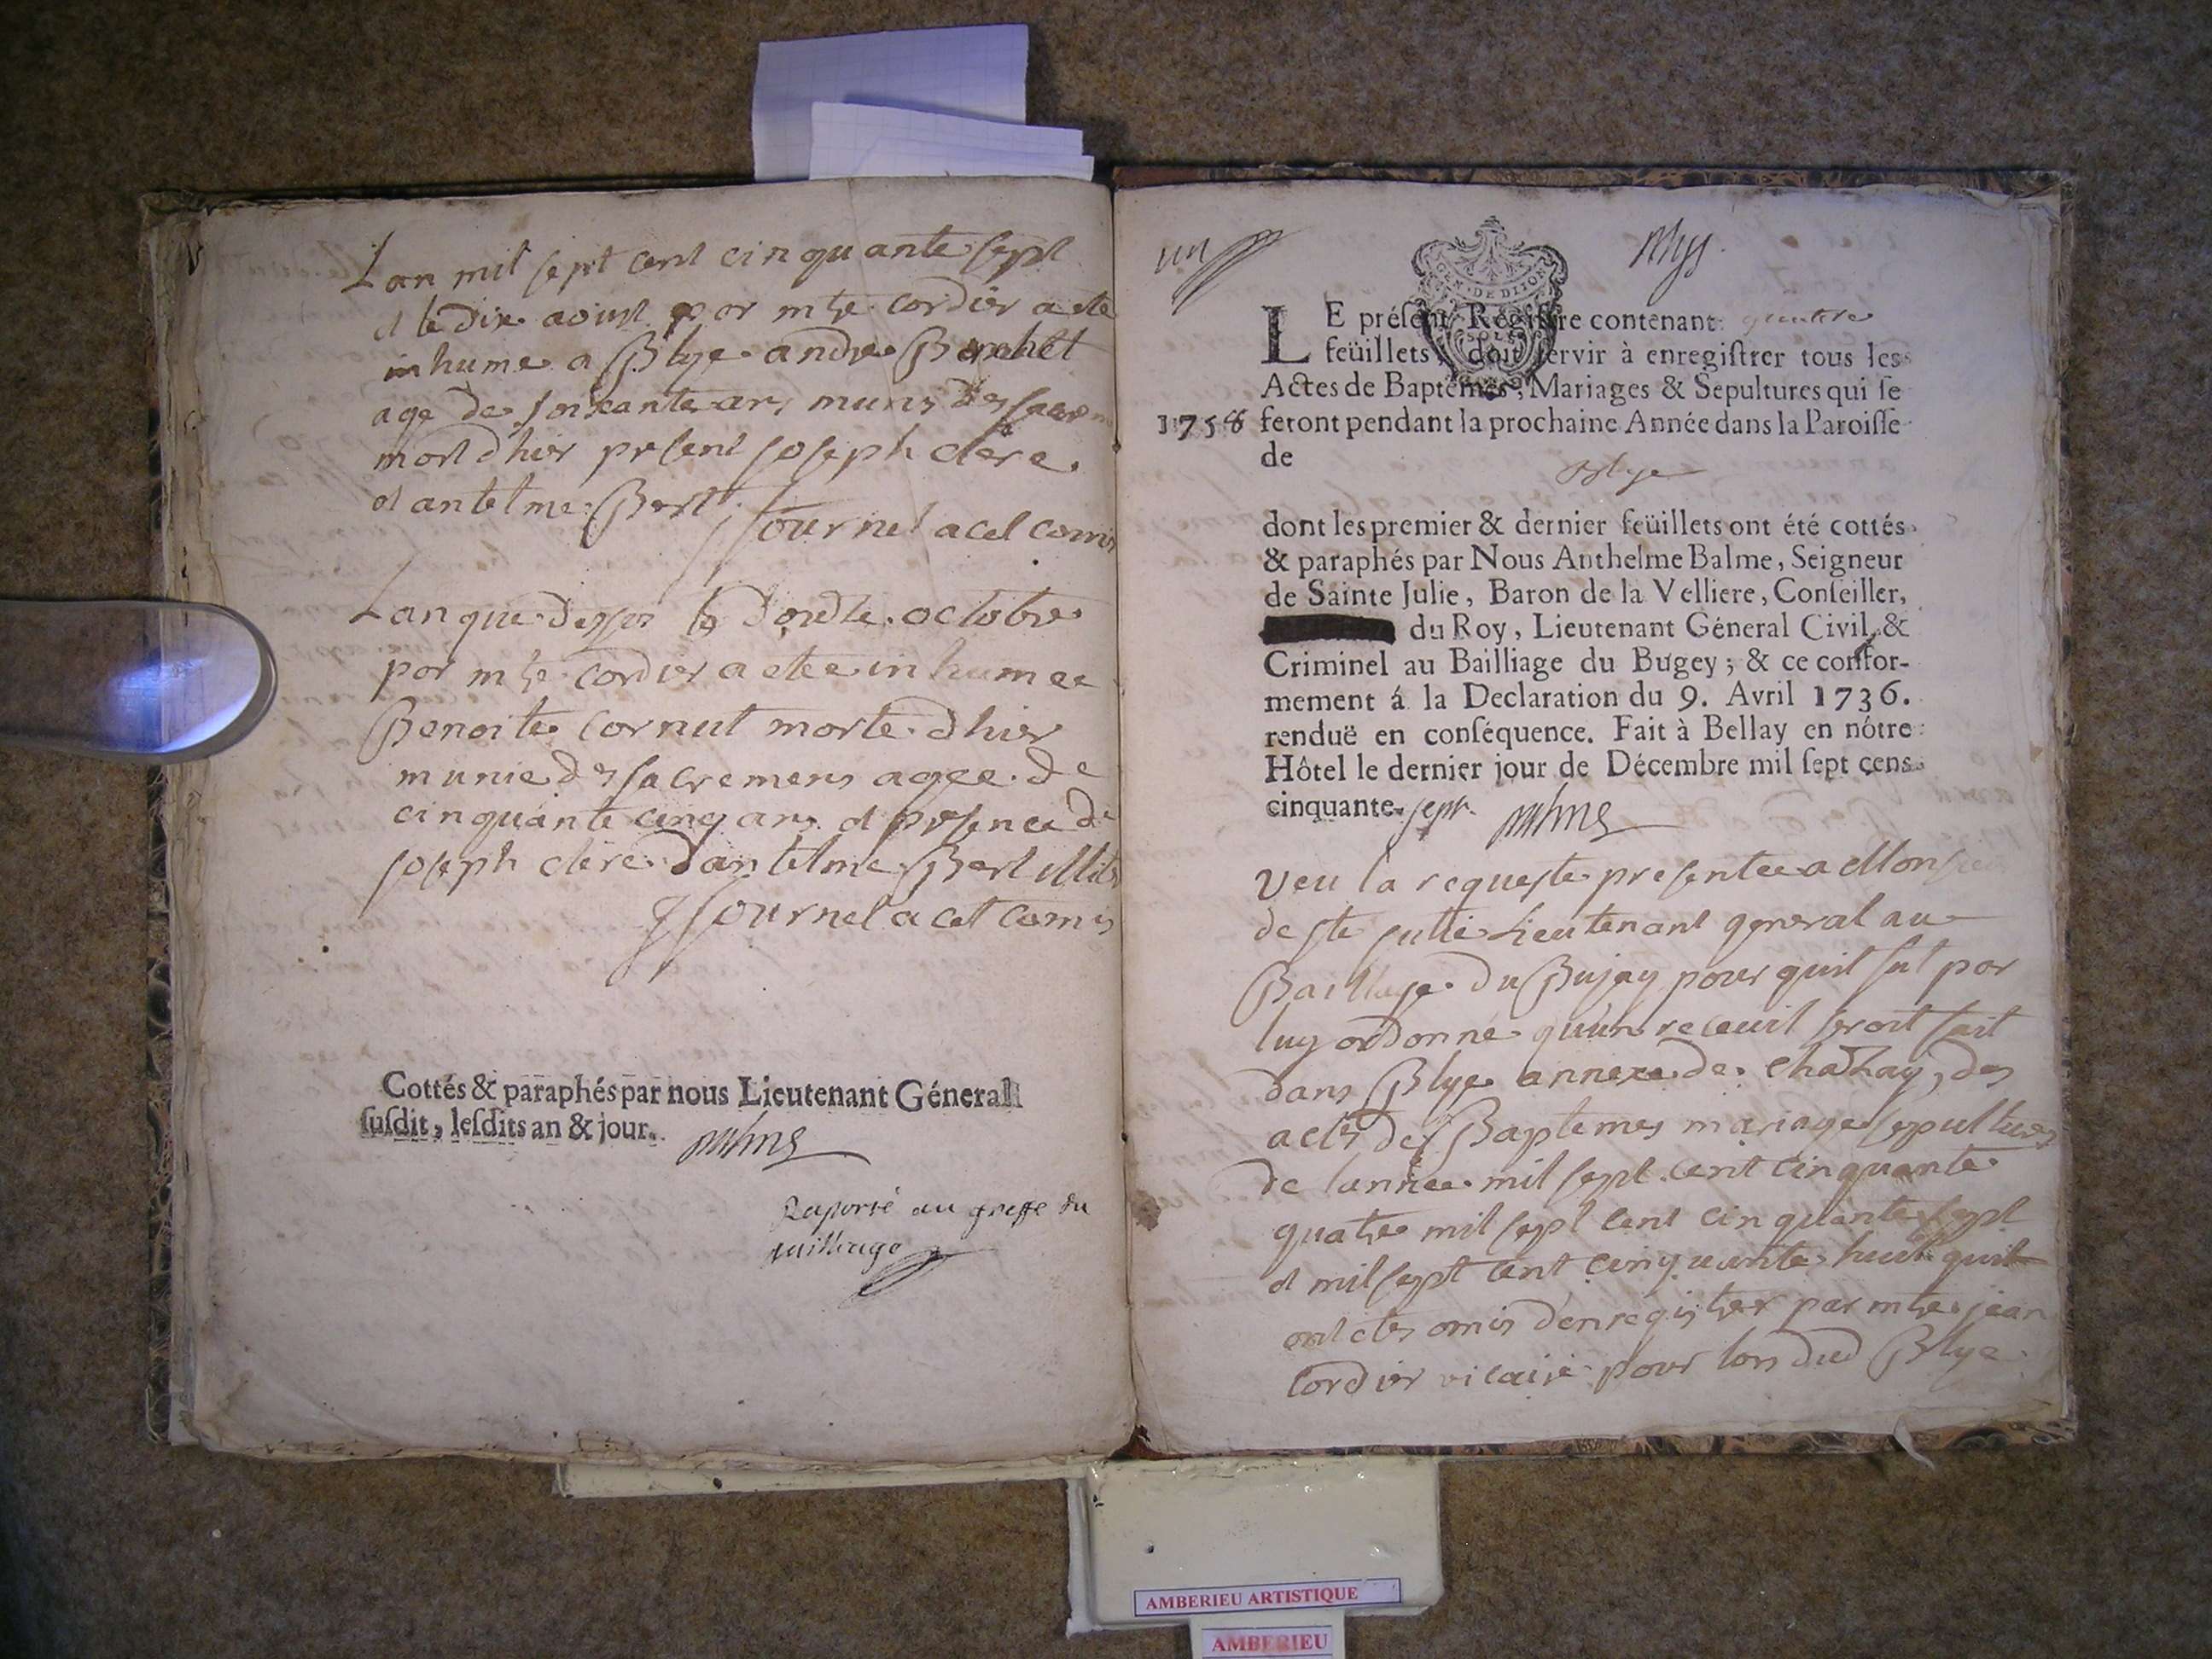 Lan mil sept cent cinquante sept
et le dix aoust par mtre cordier a ete
inhume a Blye andre Berchet
age de soixante ans munis des sacrem
mort dhier present joseph clere
et antelme Bert
Journel a cet comis
Lan que dessus le douze octobre
par mtre cordier a etee inhumee
Benoite cornut morte dhier
munie des sacremens agee de
cinquante cinq ans et presence de
joseph clere dantelme Bert illite
Journel a cet comis
Cottés & paraphés par nous Lieutenant Géneral
suſdit, leſdits an & jour.
Raporté au greffe du
bailliage
un
GEN. DE DIJON
LE préſent Regiſtre contenant quatre
feüillets, doit ſervir à enregiſtrer tous les
Actes de Baptêmes, Mariages & Sepultures qui ſe
1758 feront pendant la prochaine Année dans la Paroiſſe
de Blye
dont les premier & dernier feüillets ont été cottés
& paraphés par Nous Anthelme Balme, Seigneur
de Sainte Julie, Baron de la Velliere, Conſeiller,
du Roy, Lieutenant Géneral Civil, &
Criminel au Bailliage du Bugey; & ce confor-
mement á la Declaration du 9. Avril 1736.
renduë en conſéquence. Fait à Bellay en nôtre
Hôtel le dernier jour de Décembre mil ſept cens
cinquante sept
Veu la requeste presentee a Monsie
de ste jullie Lieutenant general au
Baillage du Bujay pour quil fut par
luy ordonne quun receuil seroit fait
dans Blye annexe de chathay, des
actes des Baptemes mariages sepultures
de lannee mil sept cent cinquante
quatre mil sept cent cinquante sept
et mil sept cent cinquante huit quil
ont etes omis denregistrer par mtre jean
Cordier vicaire pour lors dud Blye
AMBERIEU ARTISTIQUE
AMBERIEU